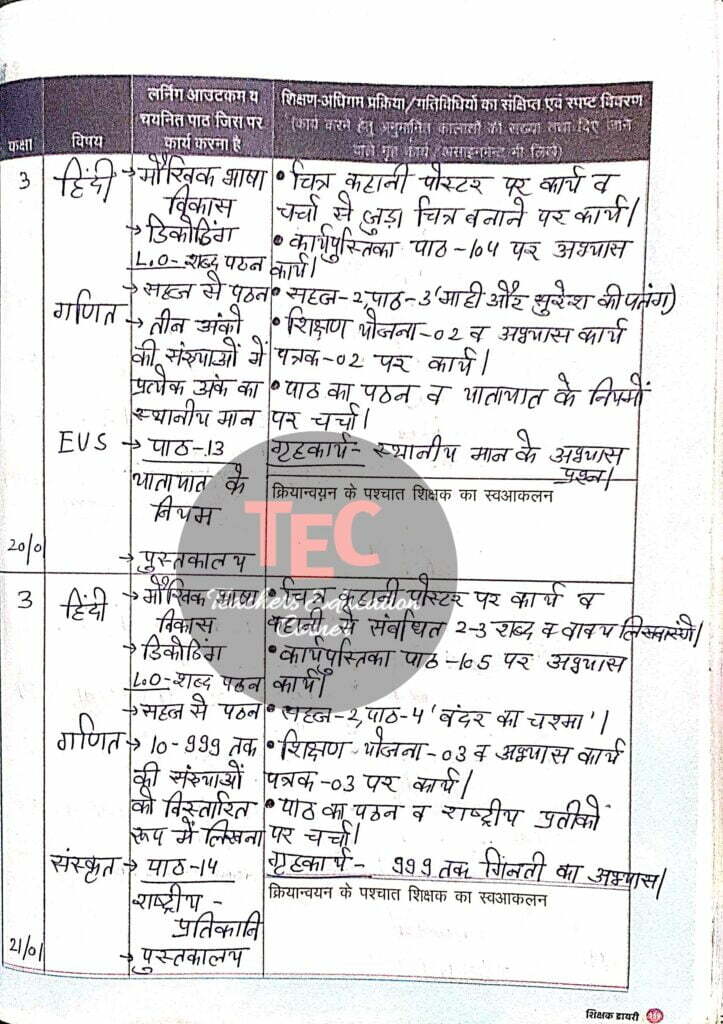 कक्षा
विषय
लर्निंग आउटकम व
चयनित पाठ जिस पर
कार्य करना है
शिक्षण-अधिगम प्रक्रिया/गतिविधियों का संक्षिप्त एवं स्पष्ट विवरण
(कार्य करने हेतु अनुमानित कालांशों की संख्या तथा दिए जाने
वाले गृह कार्य/असाइनमेन्ट भी लिखें)
3
हिंदी
→ मौखिक भाषा
विकास
→ डिकोडिंग
L.O- शब्द पठन
→ सहज से पठन
गणित
→ तीन अंको
की संख्याओं में
प्रत्येक अंक का
स्थानीय मान
EVS
→ पाठ-13
यातायात के
नियम
→ पुस्तकालय
20/0
• चित्र कहानी पोस्टर पर कार्य व
चर्चा से जुड़ा चित्र बनाने पर कार्य।
• कार्यपुस्तिका पाठ-104 पर अभ्यास
कार्य।
• सहज-2, पाठ-3 'माही और सुरेश की पतंग)
• शिक्षण योजना-02 व अभ्यास कार्य
पत्रक-02 पर कार्य।
• पाठ का पठन व यातायात के नियमों
पर चर्चा।
गृहकार्य- स्थानीय मान के अभ्यास
प्रश्न।
क्रियान्वयन के पश्चात शिक्षक का स्वआकलन
TEC
Teachers Education
Corner
3
हिंदी
→ मौखिक भाषा
विकास
→ डिकोडिंग
L.O- शब्द पठन
→ सहज से पठन
गणित
→ 10-999 तक
की संख्याओं
को विस्तारित
रूप में लिखना
संस्कृत
→ पाठ-14
राष्ट्रीय -
प्रतिकानि
→ पुस्तकालय
21/01
• चित्र कहानी पोस्टर पर कार्य व
कहानी से संबंधित 2-3 शब्द व वाक्य
• कार्यपुस्तिका पाठ-105 पर अभ्यास
कार्य।
• सहज-2, पाठ-4 'बंदर का चश्मा'।
• शिक्षण योजना-03 व अभ्यास कार्य
पत्रक-03 पर कार्य।
• पाठ का पठन व राष्ट्रीय प्रतीकों
पर चर्चा।
गृहकार्य- 999 तक गिनती का अभ्यास।
क्रियान्वयन के पश्चात शिक्षक का स्वआकलन
शिक्षक डायरी